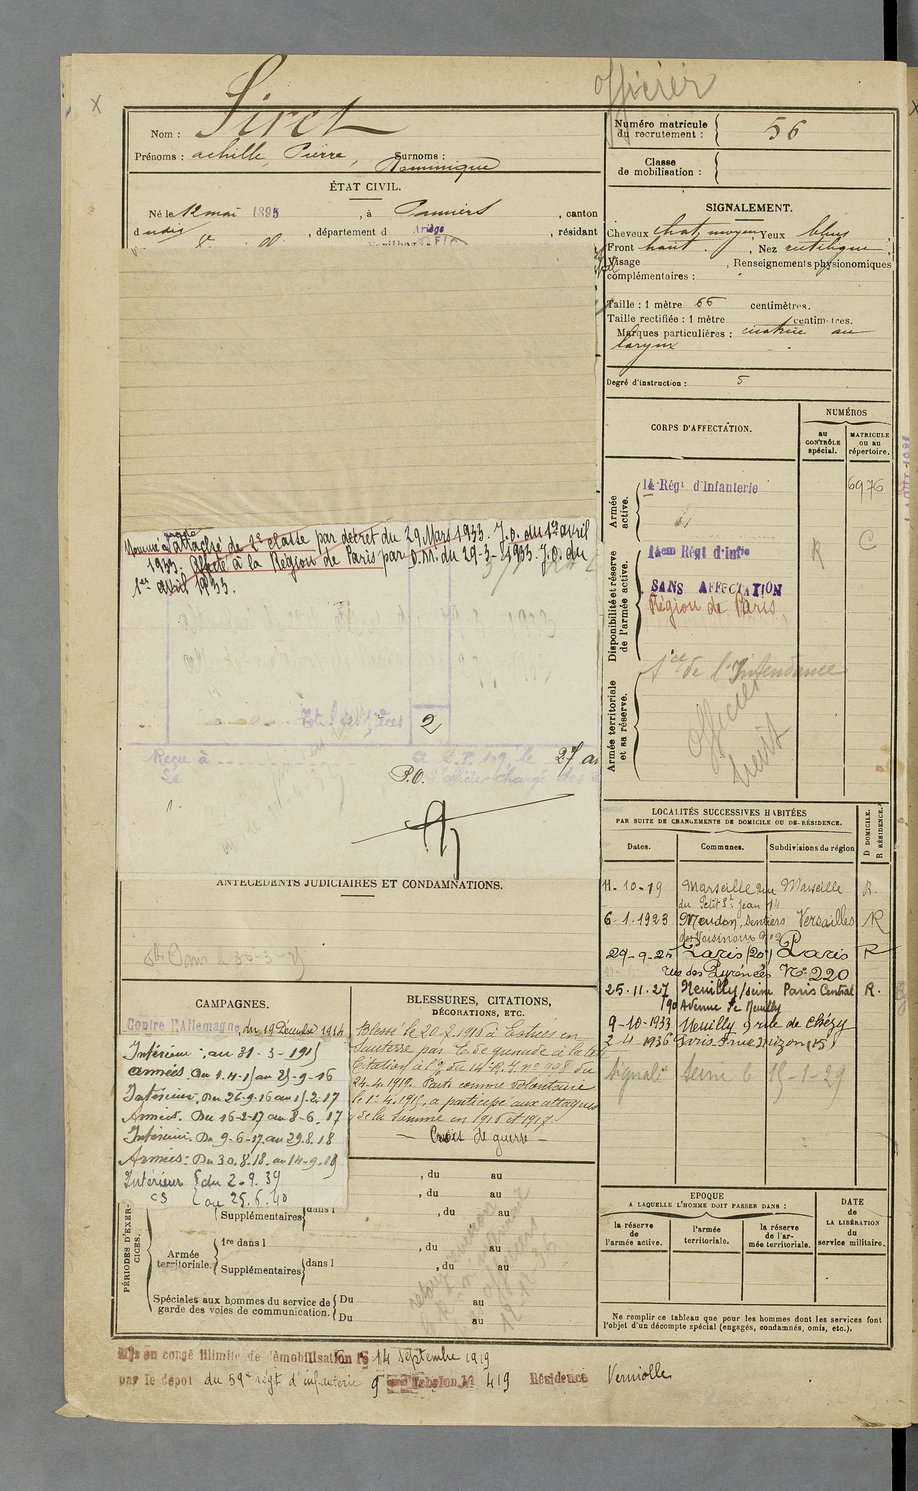 officier
Nom : Siret
Prénoms : achille, Pierre, Surnoms :
Dominique
ÉTAT CIVIL.
Né le 12 mai 1895, à Pamiers, canton
d udit, département d Ariège, résidant
Nommé attaché de 2e classe par décret du 29 Mars 1933. J.O. du 1er avril
1933. Affecté à la Région de Paris par D.M. du 29-3-1933. J.O. du
1er avril 1933.
Total des pièces 2
Reçu à
Le
P.O.
27
ANTÉCÉDENTS JUDICIAIRES ET CONDAMNATIONS.
CAMPAGNES.
Contre l'Allemagne, du 19 Décembre 1914
Intérieur : au 31-3-1915
armées. Du 1-4-15 au 25-9-16
Intérieur. Du 26-9-16 au 15-2-17
Armées. Du 16-2-17 au 8-6-17
Intérieur. Du 9-6-17 au 29.8.18
Armées : Du 30.8.18. au 14-9-19
Intérieur du 2-9-39
CS au 25.6.40
BLESSURES, CITATIONS,
DÉCORATIONS, ETC.
Blessé le 20-7-1916 à Estrées en
Santerre par E. de grenade à la
Citation à l'O. du 14e R.I. n° 298 du
24-4-1919. Parti comme volontaire
le 1er-4-1915, a participé aux attaques
de la Somme en 1916 et 1917.
— Croix de guerre —
PÉRIODES D'EXERCICES.
, du au
, du au
Supplémentaires dans l , du au
Armée territoriale. 1re dans l , du au
Supplémentaires dans l , du au
Spéciales aux hommes du service de garde des voies de communication. Du au
Du au
Mis en congé illimité de démobilisation le 14 septembre 1919
par le dépôt du 59e régt d'infanterie 9e Échelon N° 419 Résidence Verniolle
Numéro matricule
du recrutement : 56
Classe
de mobilisation :
SIGNALEMENT.
Cheveux chat moyen, Yeux bleus
Front haut, Nez rectiligne
Visage , Renseignements physionomiques
complémentaires :
Taille : 1 mètre 66 centimètres.
Taille rectifiée : 1 mètre centimètres.
Marques particulières : cicatrice au
larynx
Degré d'instruction : 5
CORPS D'AFFECTATION.
NUMÉROS
au CONTRÔLE spécial.
MATRICULE ou au répertoire.
Armée active.
14 Régt d'Infanterie 6976
Disponibilité et réserve de l'armée active.
14em Régt d'Infie R C
SANS AFFECTATION
Région de Paris
Armée territoriale et sa réserve.
Sce de l'Intendance
Officier
LOCALITÉS SUCCESSIVES HABITÉES
PAR SUITE DE CHANGEMENTS DE DOMICILE OU DE RÉSIDENCE.
D DOMICILE.
R RÉSIDENCE.
Dates. Communes. Subdivisions de région
11-10-19 Marseille rue Marseille R.
du Petit St Jean 14
6-1-1923 Meudon, sentiers Versailles R
29-9-25 Paris (20e) Paris R
rue des Pyrénées N° 220
25.11.27 Neuilly/seine Paris Central R.
190 Avenue de Neuilly
9-10-1933 Neuilly 9 rue de Chézy
2-4-1936
Signalé Seine le 15-1-29
EPOQUE
A LAQUELLE L'HOMME DOIT PASSER DANS :
la réserve de l'armée active.
l'armée territoriale.
la réserve de l'armée territoriale.
DATE de LA LIBÉRATION du service militaire.
Ne remplir ce tableau que pour les hommes dont les services font
l'objet d'un décompte spécial (engagés, condamnés, omis, etc.).